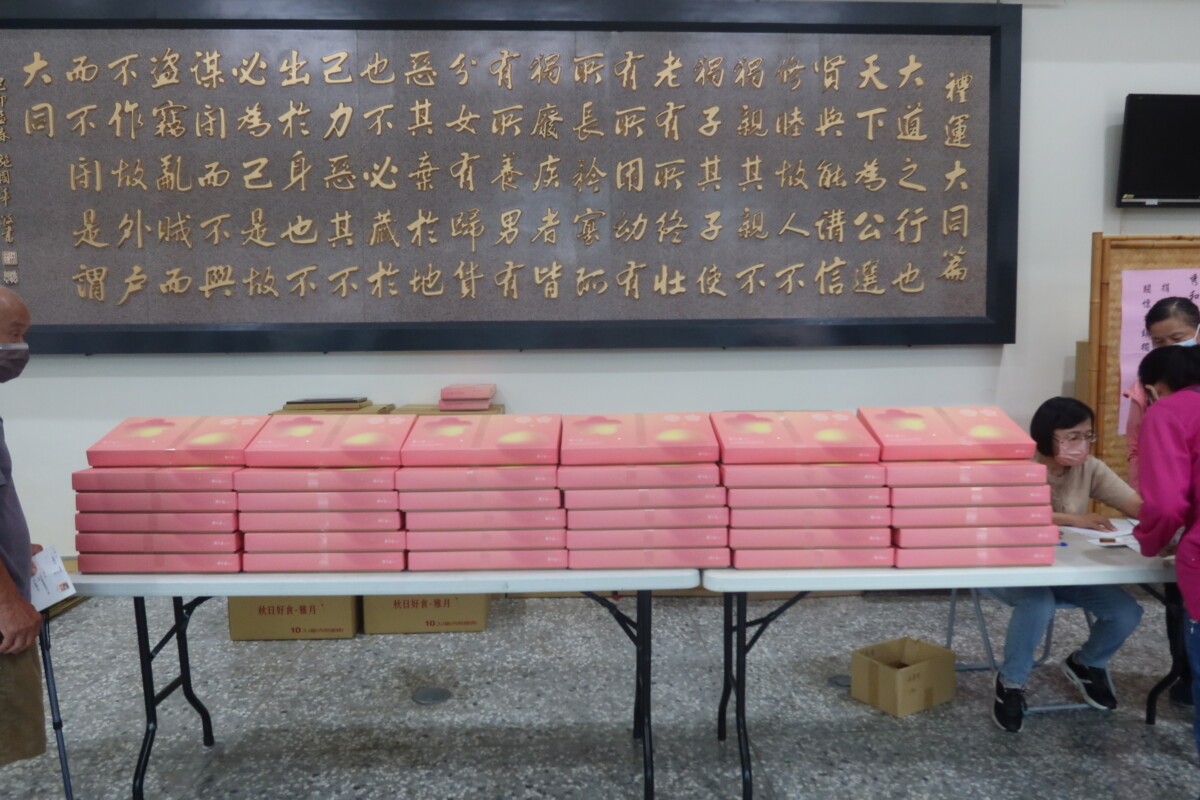 禮運大同篇
大道之行也
天下為公選
賢與能講信
修睦故人不
獨親其親不
獨子其子使
老有所終壯
有所用幼有
所長矜寡孤
獨廢疾者皆
有所養男有
分女有歸貨
惡其棄於地
也不必藏於
己力惡其不
出於身也不
必為己是故
謀閉而不興
盜竊亂賊而
不作故外戶
而不閉是謂
大同
秋日好食-雅月
10入
秋日好食-雅月
10入